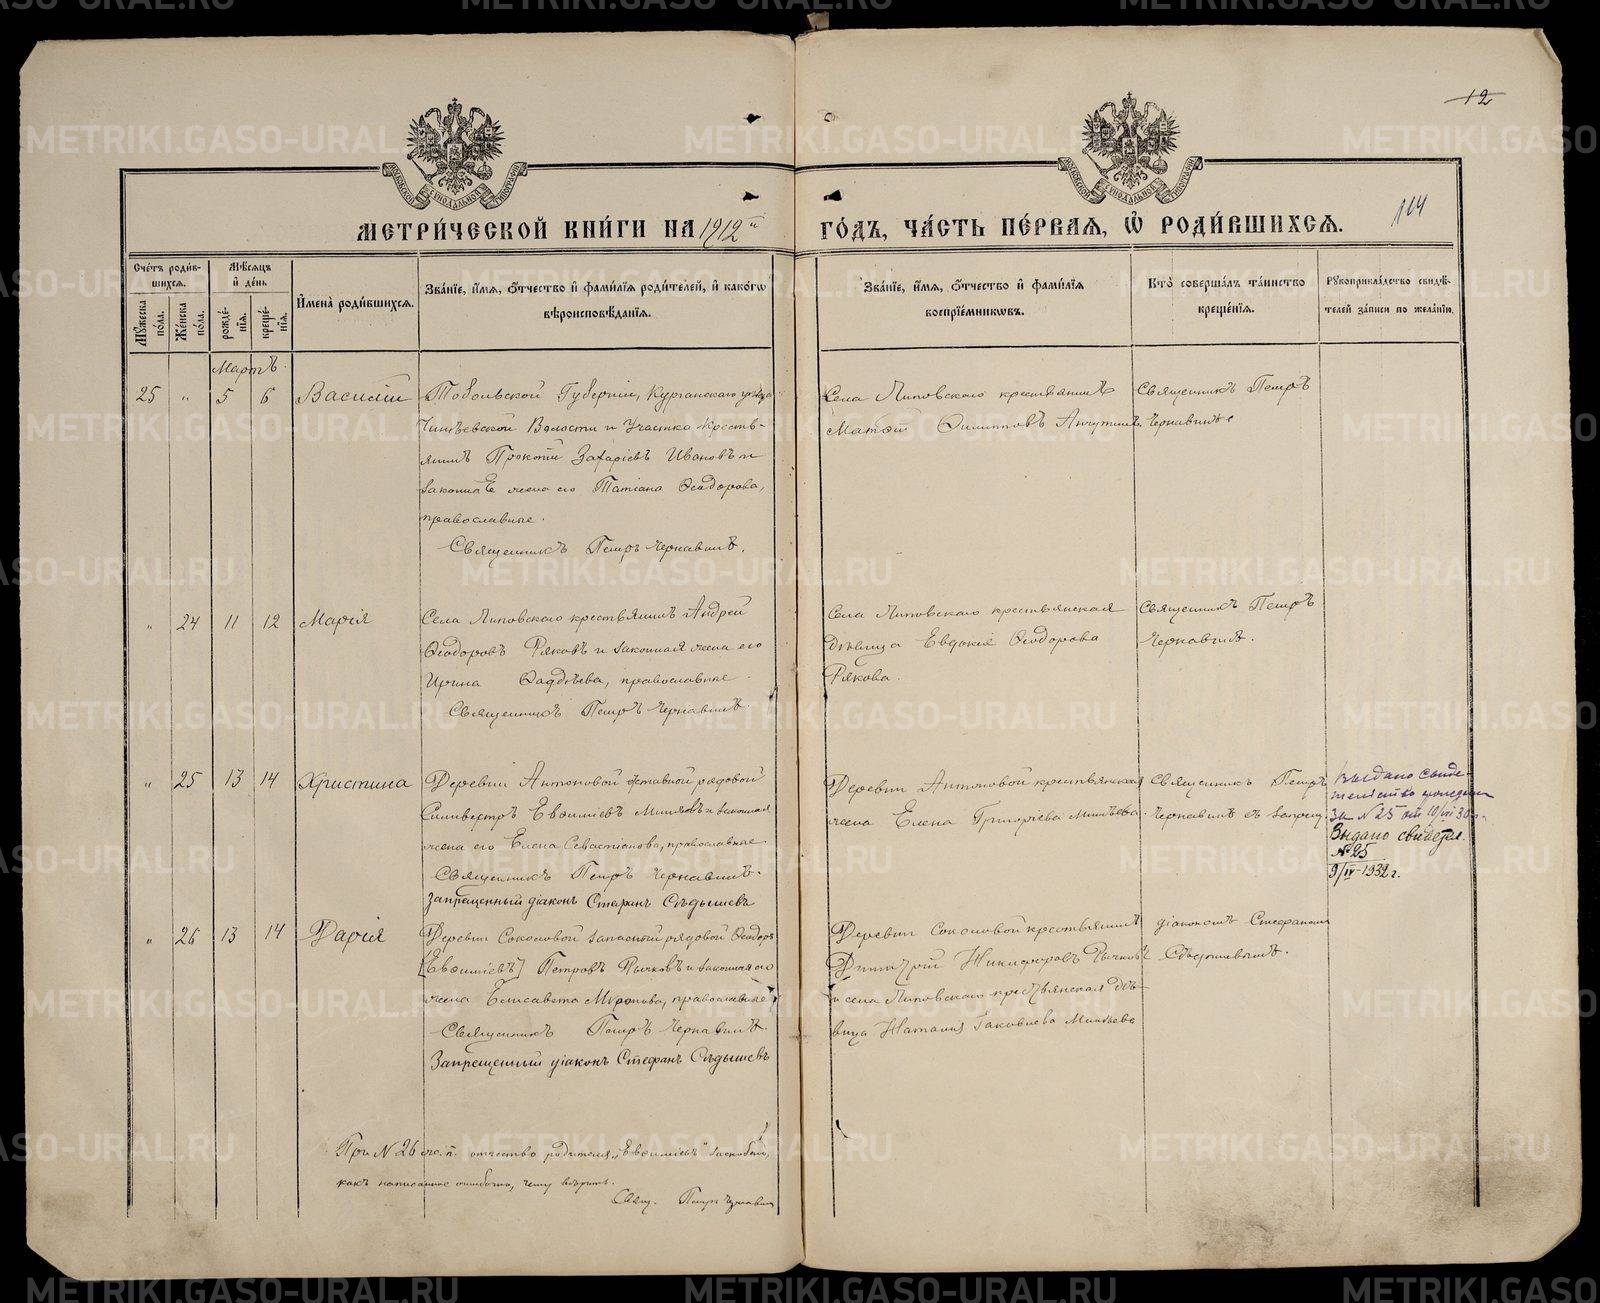 12
114
МЕТРИ́ЧЕСКОЙ КНИ́ГИ НА 1912й
ГО́ДЪ, ЧА́СТЬ ПЕ́РВАЯ, Ѡ РОДИ́ВШИХСЯ.
Сче́тъ роди́в-
шихся.
Му́жеска по́ла.
Же́нска по́ла.
Мѣ́сяцъ
и де́нь
рожде́-
нія.
креще́-
нія.
Имена́ роди́вшихся.
Зва́ніе, и́мя, ѻ́тчество и фами́лія роди́телей, и како́гѡ
вѣроисповѣ́данія.
Зва́ніе, и́мя, ѻ́тчество и фами́лія
воспріе́мникѡвъ.
Кто̀ соверша́лъ та́инство
креще́нія.
Рꙋкоприкла́дство свидѣ́-
телей за́писи по жела́нію.
Мартъ.
25 " 5 6 Василій
Тобольской Губерніи, Курганскаго уѣзда
Волости и Участка Кресть-
янинъ Прокопій Захаріевъ Ивановъ и
законная жена его Татіана Ѳеодорова,
православные.
Священникъ Петръ Чернавинъ.
Села Липовскаго крестьянинъ
Матѳій Филипповъ Анчутинъ.
Священникъ Петръ
Чернавинъ
" 24 11 12 Марія
Села Липовскаго крестьянинъ Андрей
Ѳеодоровъ Ряковъ и законная жена его
Ирина Ѳаддѣева, православные.
Священникъ Петръ Чернавинъ.
Села Липовскаго крестьянская
дѣвица Евдокія Ѳеодорова
Рякова.
Священникъ Петръ
Чернавинъ.
" 25 13 14 Христина
Деревни Антоновой отставной рядовой
Сильвестръ Евѳиміевъ Миньевъ и законная
жена его Елена Севастіанова, православные
Священникъ Петръ Чернавинъ.
Запрещенный діаконъ Стефанъ Сѣдышевъ
Деревни Антоновой крестьянская
жена Елена Григоріева Миньева.
Священникъ Петръ
Чернавинъ съ запрещ.
Выдано свиде-
за N 25 от 10/VII 30 г.
Выдано свидетел.
№ 25
9/IV-1932 г.
" 26 13 14 Дарія
Деревни Соколовой запасный рядовой Ѳеодоръ
[Евѳиміевъ] Петровъ Рычковъ и законная его
жена Елисавета Миронова, православные
Священникъ Петръ Чернавинъ.
Запрещенный діаконъ Стефанъ Сѣдышевъ
Деревни Соколовой крестьянинъ
Димитрій Никифоровъ Рычковъ
и села Липовскаго крестьянская дѣ-
вица Наталія Іаковлева Миньева
діакономъ Стефаномъ
Сѣдышевымъ.
При N 26 ж. п. отчество родителя "Евѳиміевъ" заскоблено,
какъ написанное ошибочно, чему вѣрить.
Свящ. Петръ Чернавинъ
METRIKI.GASO-URAL.RU